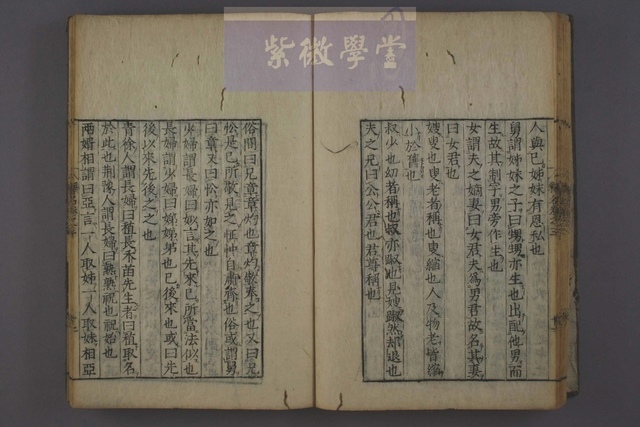 紫微學堂
人與已姊妹有恩私也
舅謂姊妹之子曰甥甥亦生也出配他男而
生故其制字男旁作生也
女謂夫之嫡妻曰女君夫為男君故名其妻
曰女君也
嫂叟也叟老者稱也叟縮也人及物老皆縮
小於舊也
叔少也幼者稱也叔亦俶也見嫂俶然却退也
夫之兄曰公公君也君尊稱也
俗間曰兄章章灼也章灼敬奉之也又曰兄
忪是已所敬見之怔忡自肅齊也俗或謂舅
曰章又曰忪亦如之也
少婦謂長婦曰姒言其先來已所當法似也
長婦謂少婦曰娣娣弟也已後來也或曰先
後以來先後之之也
青徐人謂長婦曰稙長禾苗先生者曰稙取名
於此也荊豫人謂長婦曰熟熟祝也祝始也
兩婿相謂曰亞言一人取姊一人取妹相亞